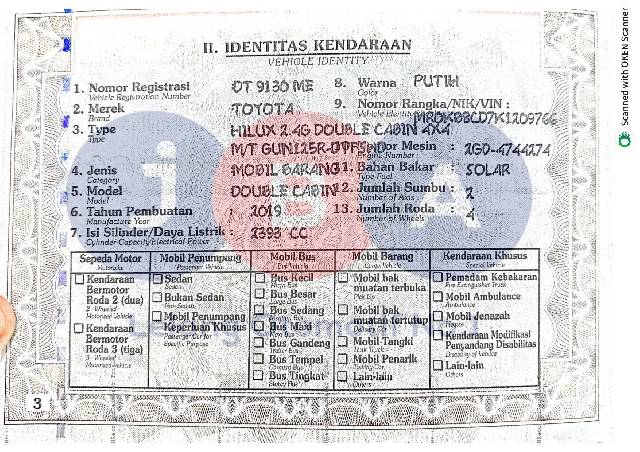 II. IDENTITAS KENDARAAN
VEHICLE IDENTITY
1. Nomor Registrasi DT 9130 ME
Vehicle Registration Number
2. Merek TOYOTA
Brand
3. Type HILUX 2.4G DOUBLE CABIN 4X4
Type M/T
4. Jenis MOBIL BARANG
Category
5. Model DOUBLE CABIN
Model
6. Tahun Pembuatan : 2019
Manufacture Year
7. Isi Silinder/Daya Listrik : 2393 CC
Cylinder Capacity/Electrical Power
8. Warna PUTIH
Color
9. Nomor Rangka/NIK/VIN :
Mesin : 2GD-4744274
Engine Number
11. Bahan Bakar : SOLAR
Type Fuel
12. Jumlah Sumbu : 2
Number of Axles
13. Jumlah Roda : 4
Number of Wheels
Sepeda Motor
Motorcycle
Kendaraan Bermotor Roda 2 (dua)
2 - Wheeled Motorized Vehicle
Kendaraan Bermotor Roda 3 (tiga)
3 - Wheeled Motorized Vehicle
Mobil Penumpang
Passenger Vehicle
Sedan
Sedan
Bukan Sedan
Mobil Penumpang Keperluan Khusus
Passenger Car for Specific Purpose
Mobil Bus
Bus Kecil
Bus Besar
Bus Sedang
Bus Maxi
Bus Gandeng
Bus Tempel
Bus Tingkat
Mobil Barang
Mobil bak muatan terbuka
Pick Up
Mobil bak muatan tertutup
Mobil Tangki
Mobil Penarik
Lain-lain
Others
Kendaraan Khusus
Special Vehicle
Pemadam Kebakaran
Fire Extinguisher Truck
Mobil Ambulance
Ambulance
Mobil Jenazah
Kendaraan Modifikasi Penyandang Disabilitas
Lain-lain
Others
3
iBA
Scanned with OKEN Scanner